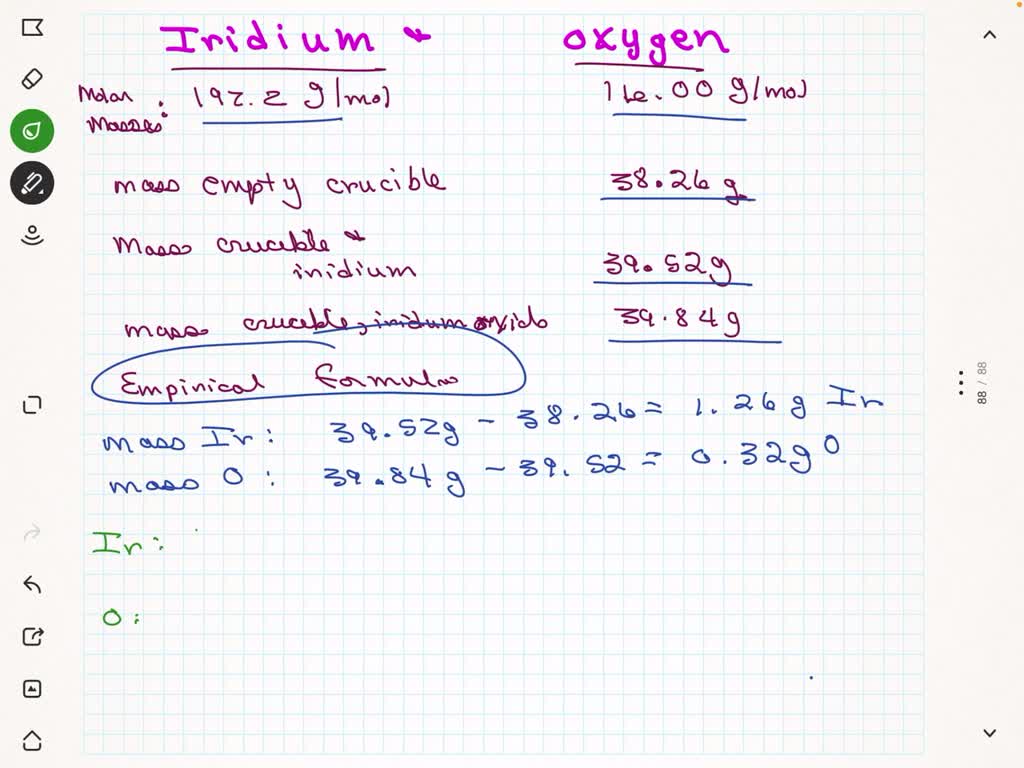 Iridium & oxygen
Molar Masses: 192.2 g/mol 16.00 g/mol
mass empty crucible 38.26 g
Mass crucible & iridium 39.52g
mass crucible, iridium oxide 39.84g
Empirical formula
mass Ir: 39.52g - 38.26 = 1.26g Ir
mass O: 39.84g - 39.52 = 0.32g O
Ir:
O:
88 / 88